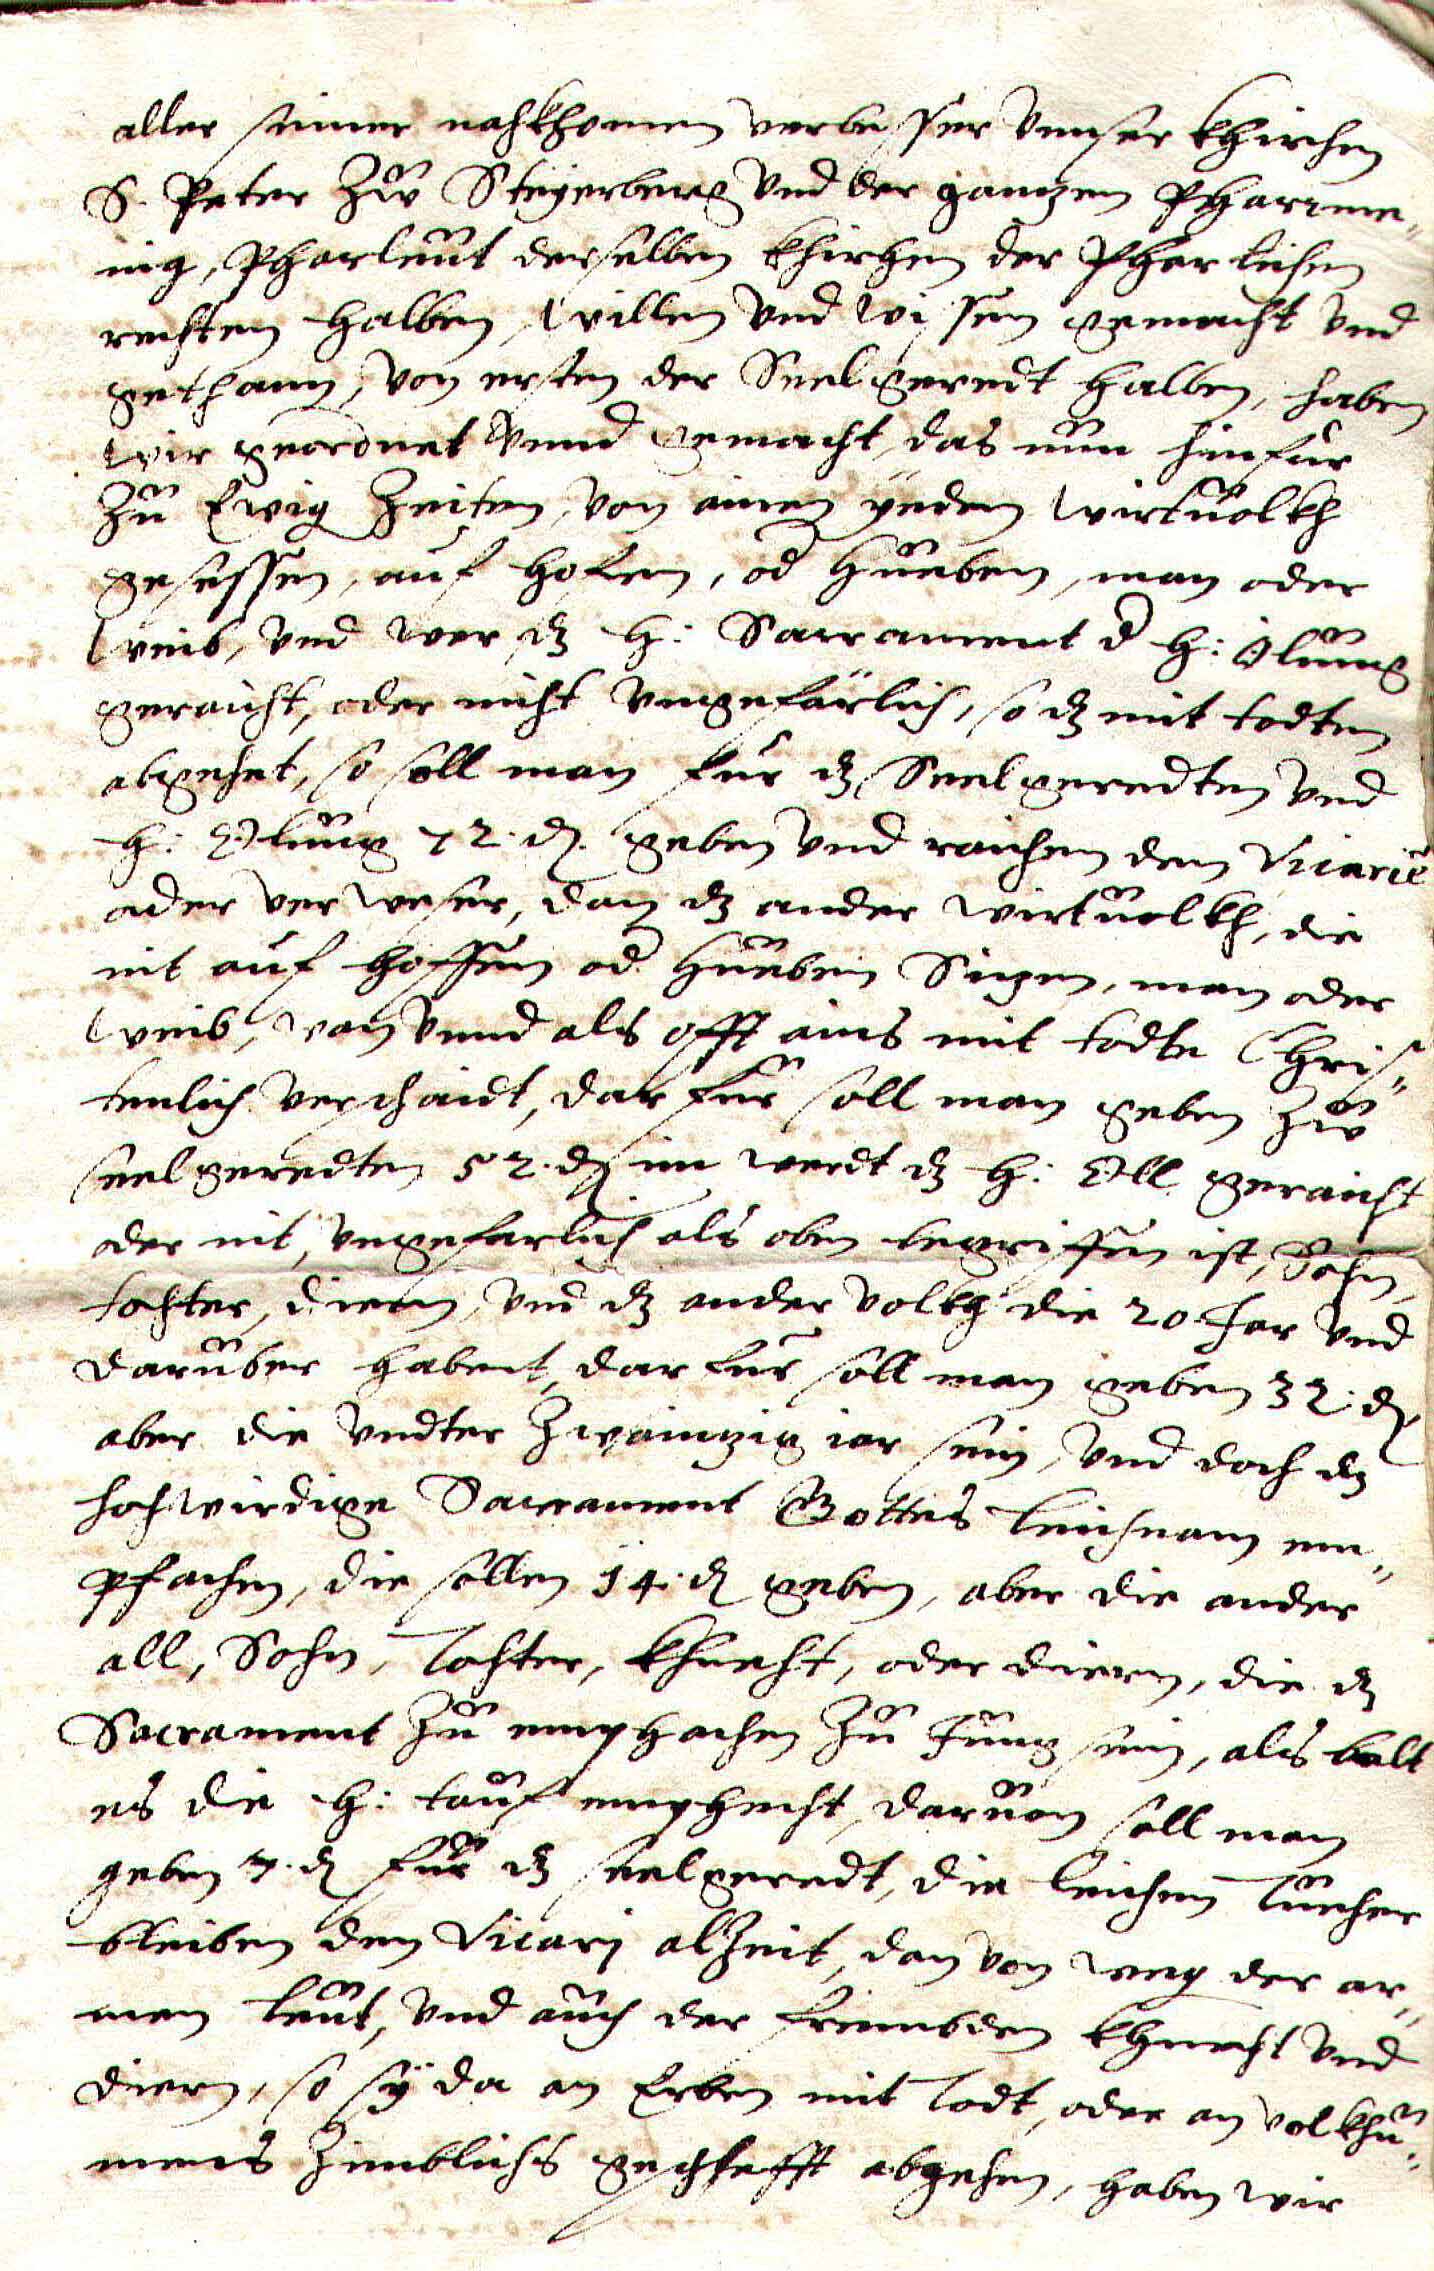 aller seiner nachkhomen verweser vnnser khirchen
S. Peter zŵ Steyerberg vnd der gantzen Pharrme„
nig, Pharleüt derselben khirchen der Pharlichen
rechten halben, willen vnd wissen gemacht vnd
gethann, von ersten der Seelgeredt halben, haben
wir geordnet vnnd gemacht, das nun hinfür
zu Ewig Zeiten, von ainen yeden wirtuolkh
gesessen, auf hofen, od hueben, man oder
weib, vnd wer dz h: Sacrament d h: ölung
geraicht, oder nicht vngefärlich, so dz mit todten
abgehet, so soll man für dz Seelgeredten vnd
h: Ölung 72 d. geben vnd raichen dem Vicarie
oder verweser, dan dz ander wirtuolkh, die
nit auf hoffen od hueben Sizen, man oder
weib, wan vnnd als offt ains mit todte Chris„
tenlich verschaidt, dar für soll man geben zŵ
seelgeredten 52 d im werdt dz h: Öll geraicht
oder nit, vngefarlich als oben begriffen ist, Sohn,
tochter, diern, vnd dz ander volkh die 20 Jar vnd
darüber habent, dar für soll man geben 32 d,
aber die vndter zwaintzig iar sein, vnd doch dz
hochwirdige Sacrament Gottes leichnam em„
pfachen, die sollen 14 d geben, aber die ander
all, Sohn, Tochter, khnecht, oder diern, die dz
Sacrament zu emphachen zu Jung sein, als balt
es die h: tauf emphecht, daruon soll man
geben 7 d für dz seelgeredt, die leichen tuecher
bleiben dem Vicarj alzeit, dan von weg der ar„
men leüt, vnd auch der frembden khnecht vnd
diern, so sÿ da an Erben mit Todt, oder an volkhu„
mens zimblichs gescheft abgehen, haben wir